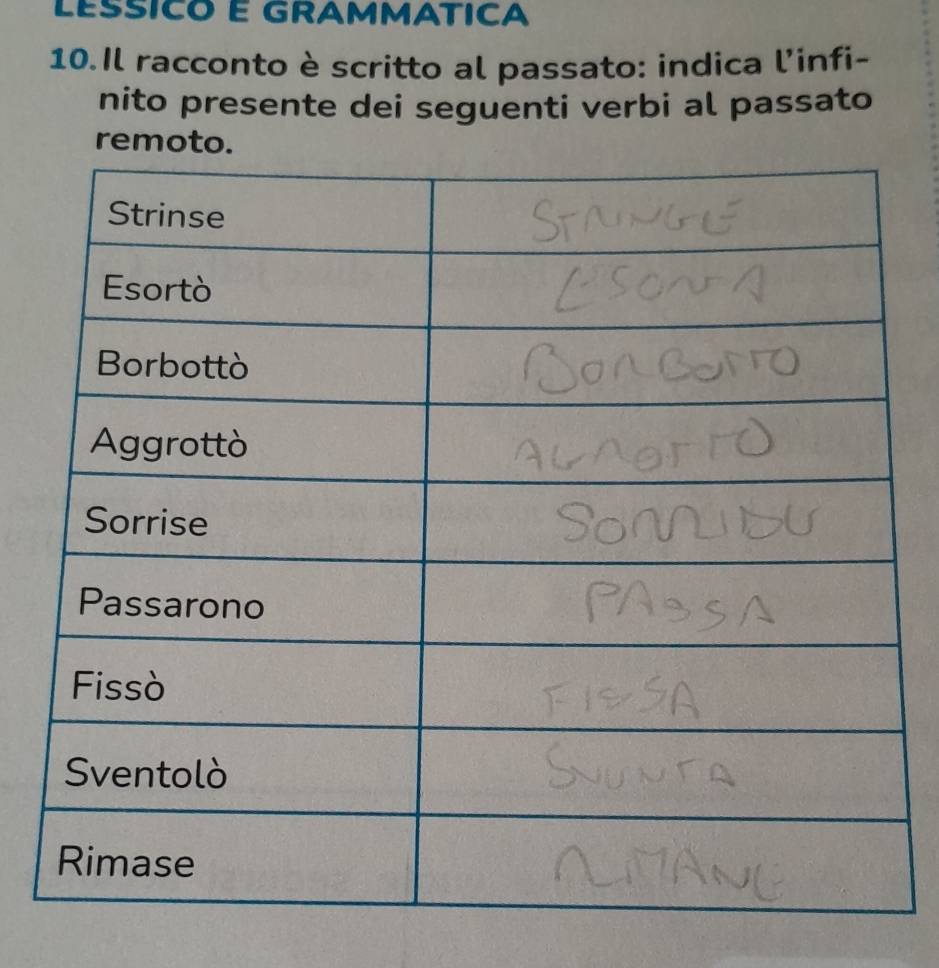 LESSICO E GRAMMATICA
10. Il racconto è scritto al passato: indica l'infi-
nito presente dei seguenti verbi al passato
remoto.
Strinse STRINGE
Esortò ESORTA
Borbottò BORBOTTO
Aggrottò AGROTTO
Sorrise SORRIDE
Passarono PASSA
Fissò FISSA
Sventolò SVENTA
Rimase RIMANE